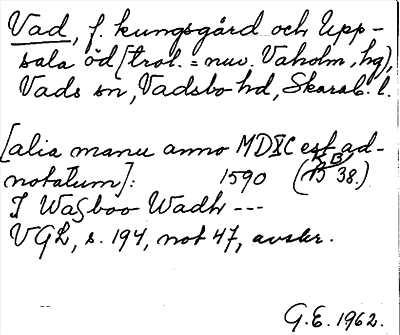 Vad, f. kungsgård och Upp-
sala öd [trol. = nuv. Vaholm, hg],
Vads sn, Vadsbo hd, Skarab. l.
[alia manu anno MDXC est ad-
notatum]: 1590 (B 38.)
I Waſboo Wadh ---
VGL, s. 194, not 47, avskr.
G.E. 1962.